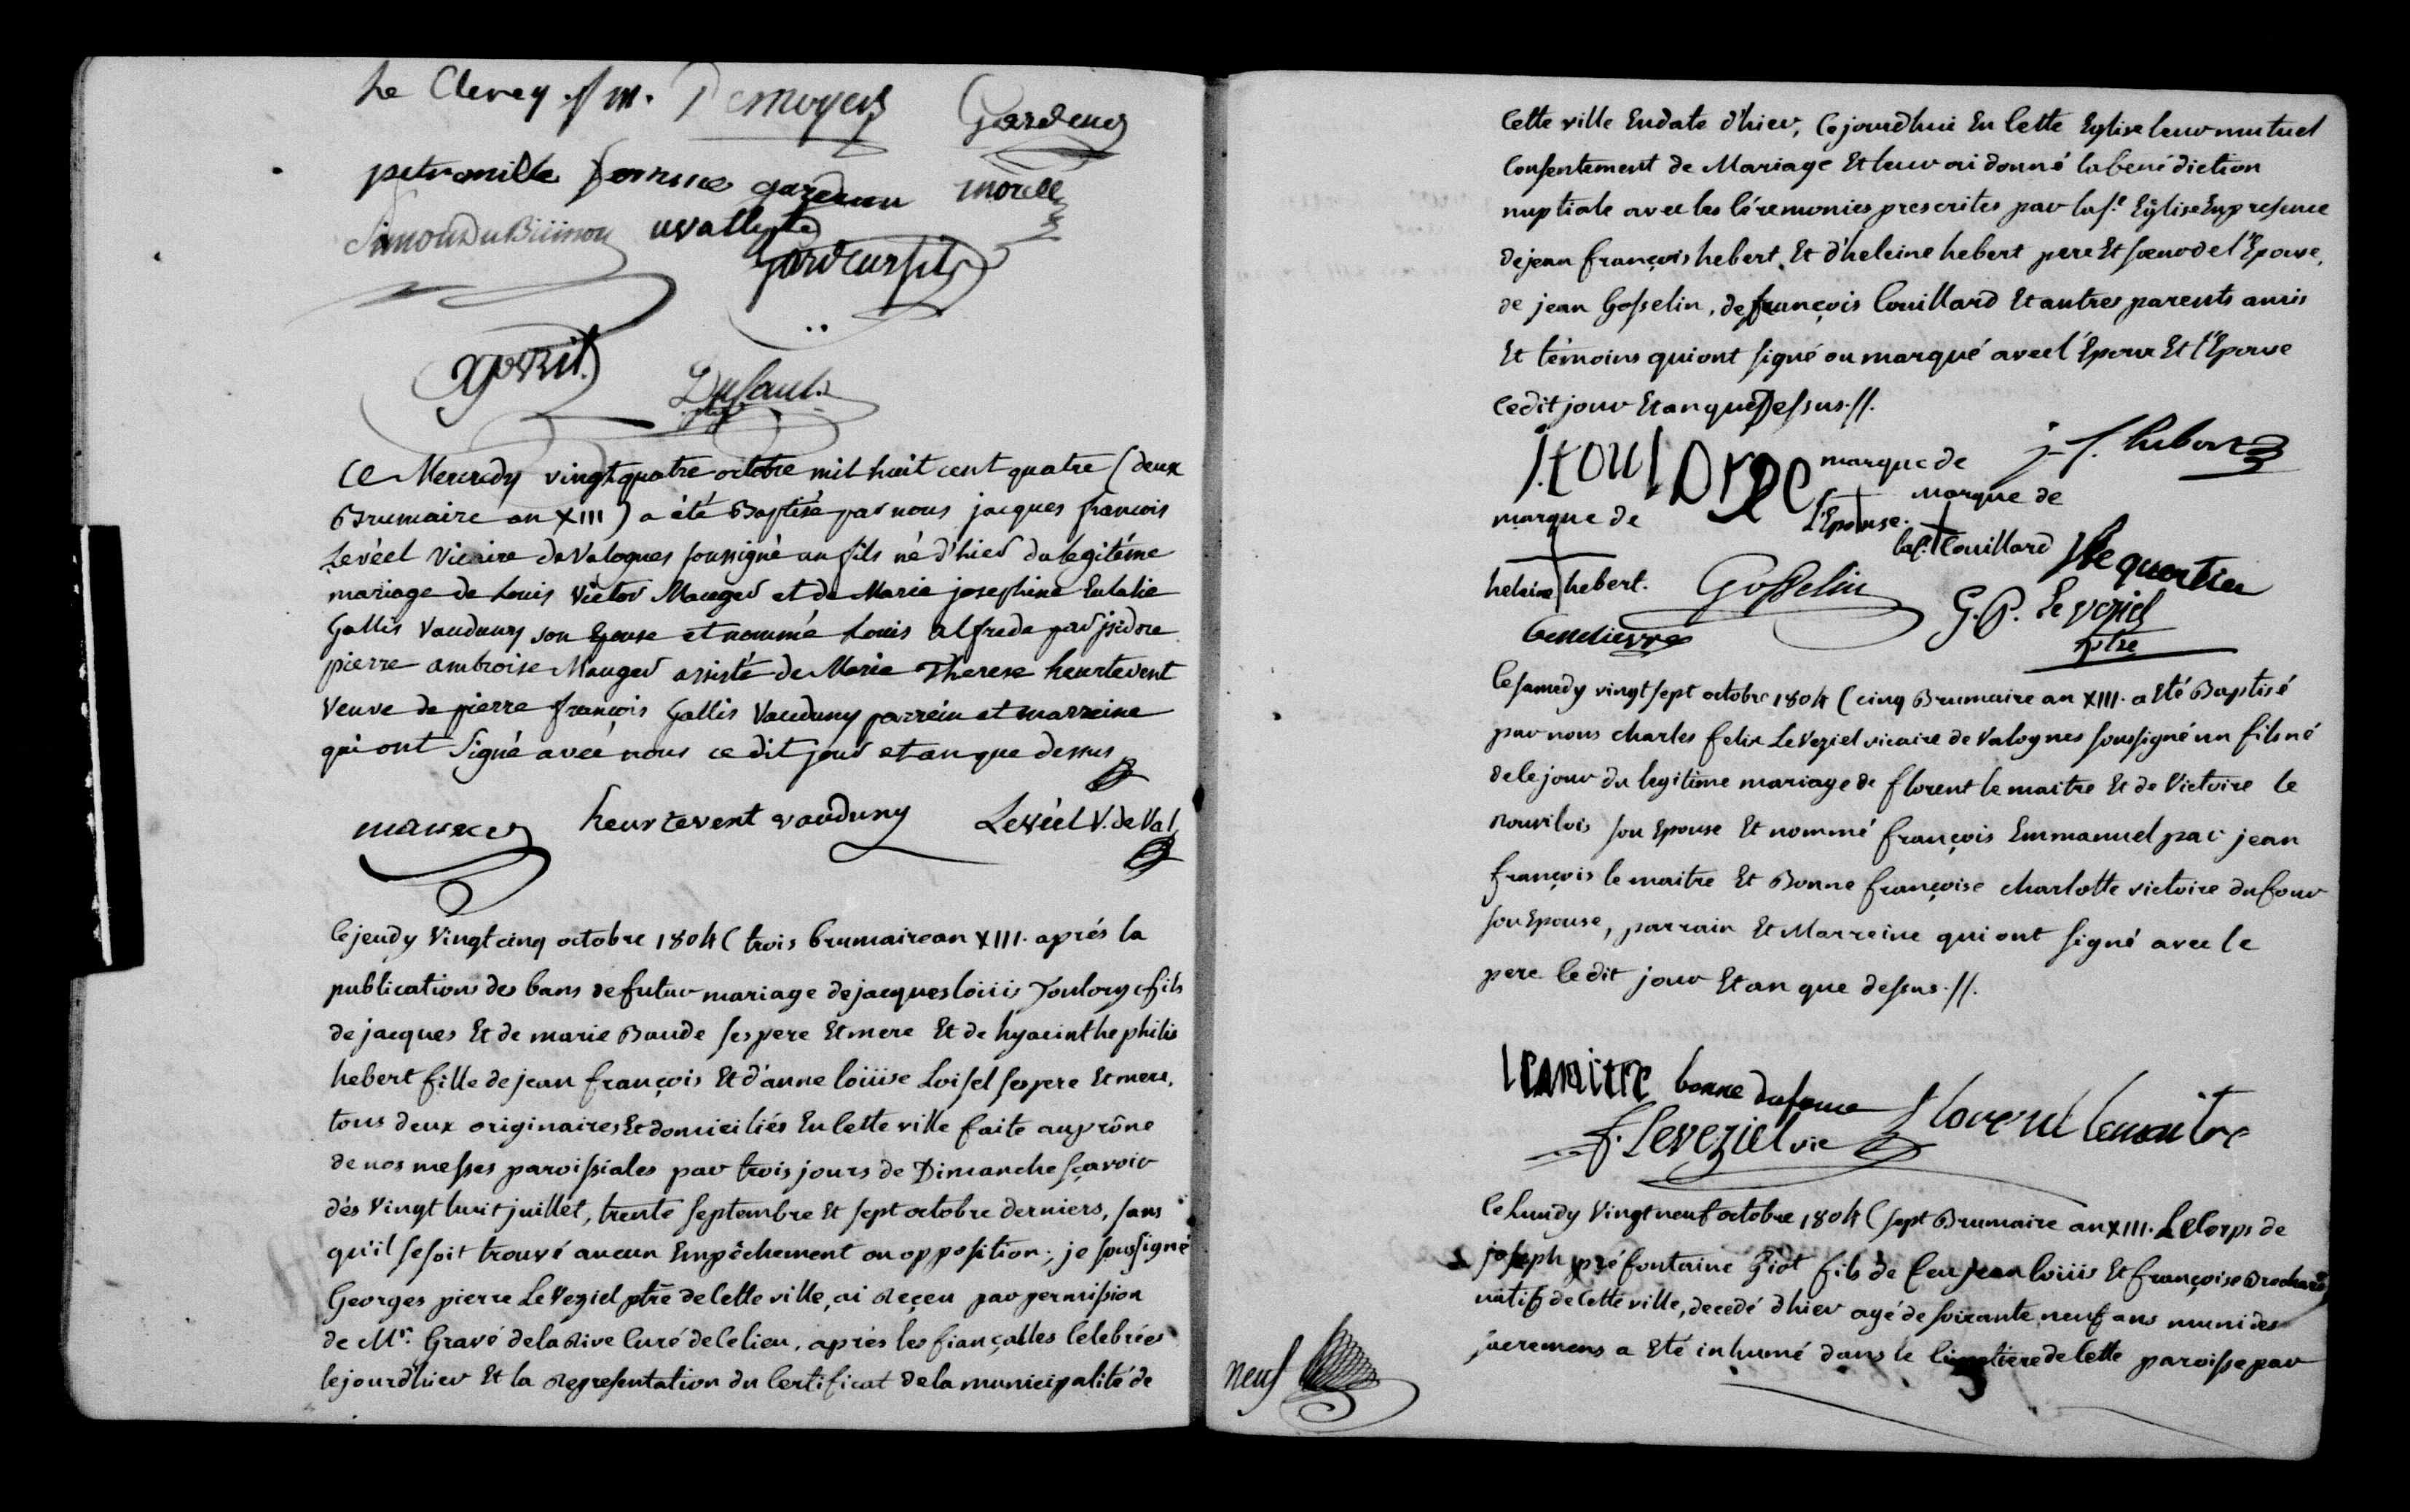 Le Clerey f m. Desmoyers Gardeur
petronille femme gardeur morell
Simon Du Buisson
gardeur fils
Dufault
Ce Mercredy vingt quatre octobre mil huit cent quatre (deux
Brumaire an XIII) a été Baptisé par nous jacques francois
Levéel Vicaire de Valognes soussigné un fils né d'hier du legitéme
mariage de Louis Victor Mauger et de Marie josephine Eulalie
Gallis Vauduny son Epouse et nommé Louis alfrede par jsidore
pierre ambroise Mauger assisté de Marie Therese heurtevent
Veuve de pierre françois Gallis Vauduny parrein et marreine
qui ont Signé aveé nous ce dit jour et an que dessus
mauger heurtevent vauduny Levéel V. de Val
Ce jeudy Vingt cinq octobre 1804 (trois brumaire an XIII. aprés la
publications des bans de futur mariage de jacques loüis Toulorge fils
de jacques Et de marie Baude ses pere Et mere Et de hyacinthe philis
hebert fille de jean françois Et d'anne loüise Loisel ses pere Et mere,
tous deux originaires Et domiciliés En Cette ville faite au prône
de nos messes paroissiales par trois jours de Dimanche sçavoir
dés Vingt huit juillet, trente septembre Et sept octobre derniers, sans
qu'il se soit trouvé aucun Empêchement ou opposition; je soussigné
Georges pierre Le Veziel ptre de Cette ville, ai Reçeu par permission
de Mr. Gravé de la Rive Curé de Ce lieu, après les fiançalles Celebrées
Ce jourd'hier Et la Representation du Certificat de la municipalité de
Cette ville En date d'hier, Ce jourd'hui En Cette Eglise leur mutuel
Consentement de Mariage Et leur ai donné la benédiction
nuptiale avec les Céremonies prescrites par la s.e Eglise En presence
de jean françois hebert, Et d'heleine hebert pere Et sœur de l'Epouse,
de jean Gosselin, de françois Couillard Et autres parents amis
Et témoins qui ont signé ou marqué avec l'Epoux Et l'Epouse
Ce dit jour Et an que Dessus.//.
J. toulorge marque de j. f. hebert
marque de l'Epouse. marque de
Couillard Lequertier
heleine hebert. Gosselin G. P. Le veziel
ptre
Ce samedy vingt sept octobre 1804 (cinq Brumaire an XIII. a Eté Baptisé
par nous charles felix Le Veziel vicaire de Valognes soussigné un fils né
de Ce jour du legitime mariage de florent le maitre Et de Victoire le
rouvilois son Epouse Et nommé françois Emmanuel par jean
françois le maitre Et Bonne françoise charlotte victoire dufour
son Epouse, parrain Et Marreine qui ont signé avec le
pere Ce dit jour Et an que dessus.//.
lemaitre bonne dufour florent lemaitre
f. Leveziel vic
Ce Lundy Vingt neuf octobre 1804 (sept Brumaire an XIII. Le Corps de
joseph préfontaine Giot fils de feu jean loüis Et françoise Brochard
natif de Cette ville, decedé d'hier agé de soixante neuf ans muni des
sacremens a Eté inhumé dans le Cimetiere de Cette paroisse par
neuf